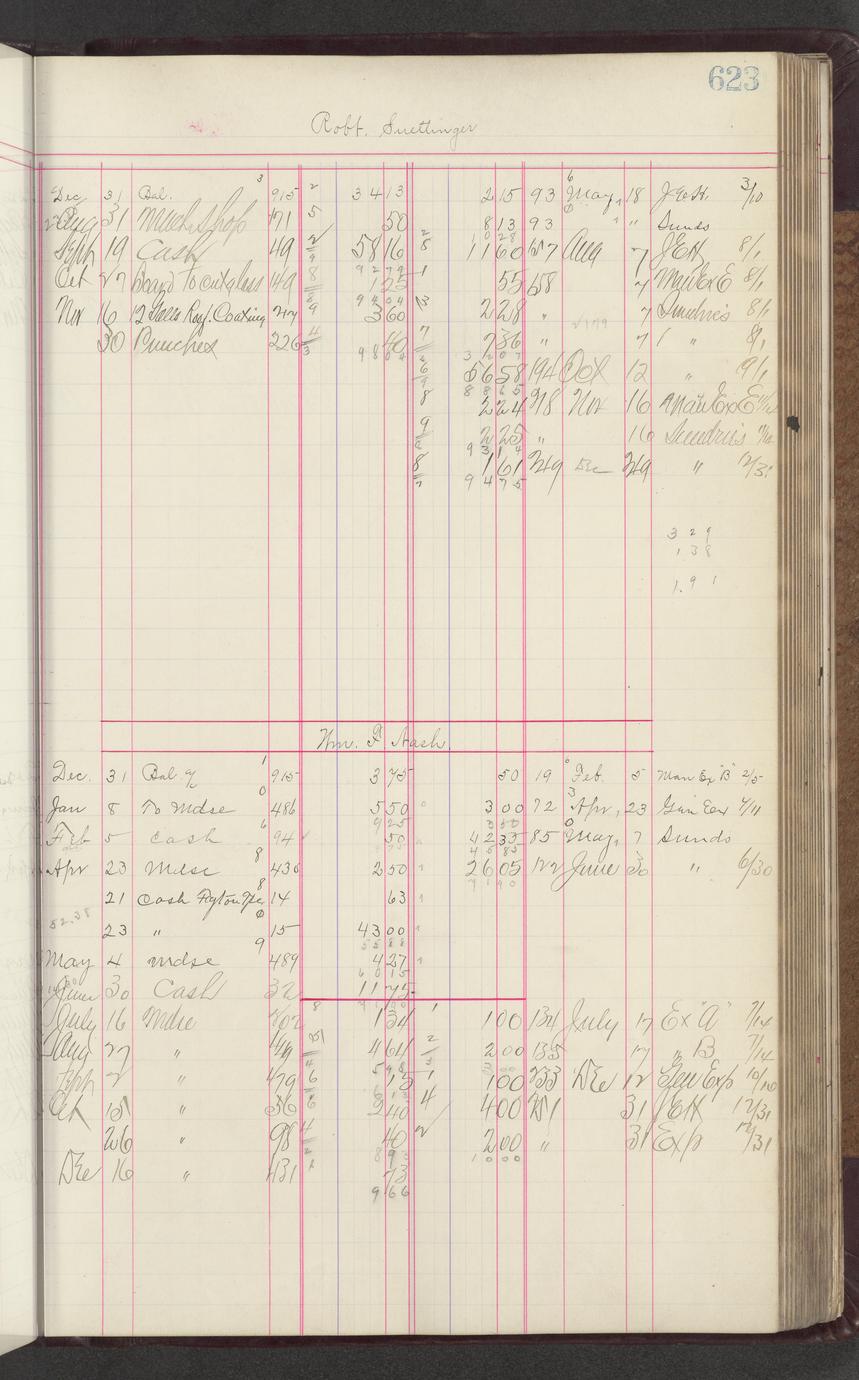 623
Robt. Suettinger
Dec 31 Bal. 915 34 13 2 15 93 May 18 J.E.H. 3/10
Aug 31 Mach. Shop 171 50 8 13 93 " " Sunds
Sept 19 Cash 49 58 16 11 60 157 Aug 7 JEH 8/1
92 79
Oct 27 Board to cut glass 149 1 25 55 158 7 Man Ex E 8/1
94 04
Nov 16 12 Galls Roof. Coating 247 3 60 2 28 " 7 Sundries 8/1
30 Punches 226 40 7 36 " 7 " 8/1
98 04 32 07
56 58 194 Oct 12 " 9/1
88 65
2 24 218 Nov 16 Man Ex E
2 25 " 16 Sundries
93 14
1 61 249 Dec 12/31
94 75
3 29
1 38
1.91
Wm. F. Nash.
Dec. 31 Bal 915 3 75 50 19 Feb. 5 Man Ex "B" 2/5
Jan 8 To Mdse 486 5 50 3 00 72 Apr. 23 Gen Exp 4/11
9 25 3 50
Feb 5 Cash 94 50 42 35 85 May 7 Sunds
45 85
Apr 23 Mdse 436 2 50 26 05 122 June 30 " 6/30
71 90
21 Cash 14 63
52.38
23 " 15 43 00
55 88
May 4 Mdse 489 4 27
60 15
June 30 Cash 32 11 75
71 90
July 16 Mdse 402 1 34 1 00 134 July 17 Ex "A" 7/14
Aug 27 " 4 64 2 00 135 17 " B 7/14
5 98 3 00
Sept 2 " 479 15 1 00 233 Dec 12 Gen Exp 10/10
6 13
Oct 15 " 56 2 40 4 00 251 31 JEH 12/31
26 " 98 40 2 00 " 31 Exp 12/31
8 93 10 00
Dec 16 " 131 73
9 66